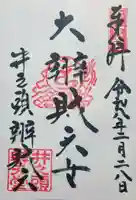 奉拝 令和八年二月二八日
大辨財天女
井之頭辨財天